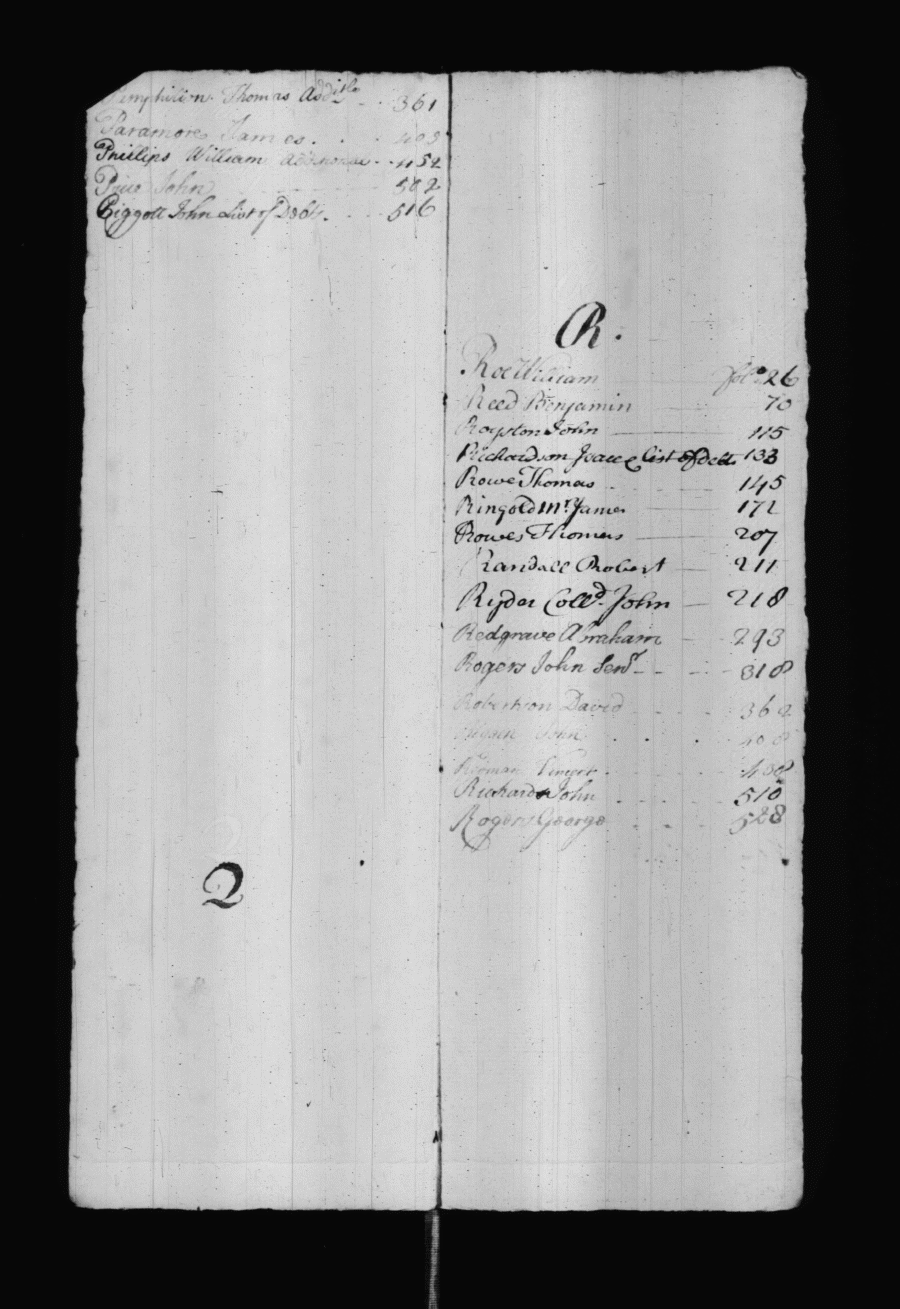 Pemphilion Thomas Addition 361
Paramore James 403
Phillips William additional 452
Price John 502
Piggott John List of Debts 516
Q
R.
Roe William folo 26
Reed Benjamin 70
Royston John 115
Richardson Isaac List of debts 133
Rowe Thomas 145
Ringold Mr. James 172
Rowes Thomas 207
Randall Robert 211
Ryder Colld. John 218
Redgrave Abraham 293
Rogers John Senr 318
Robertson David 362
John 408
Vincent 488
Richards John 510
Rogers George 528